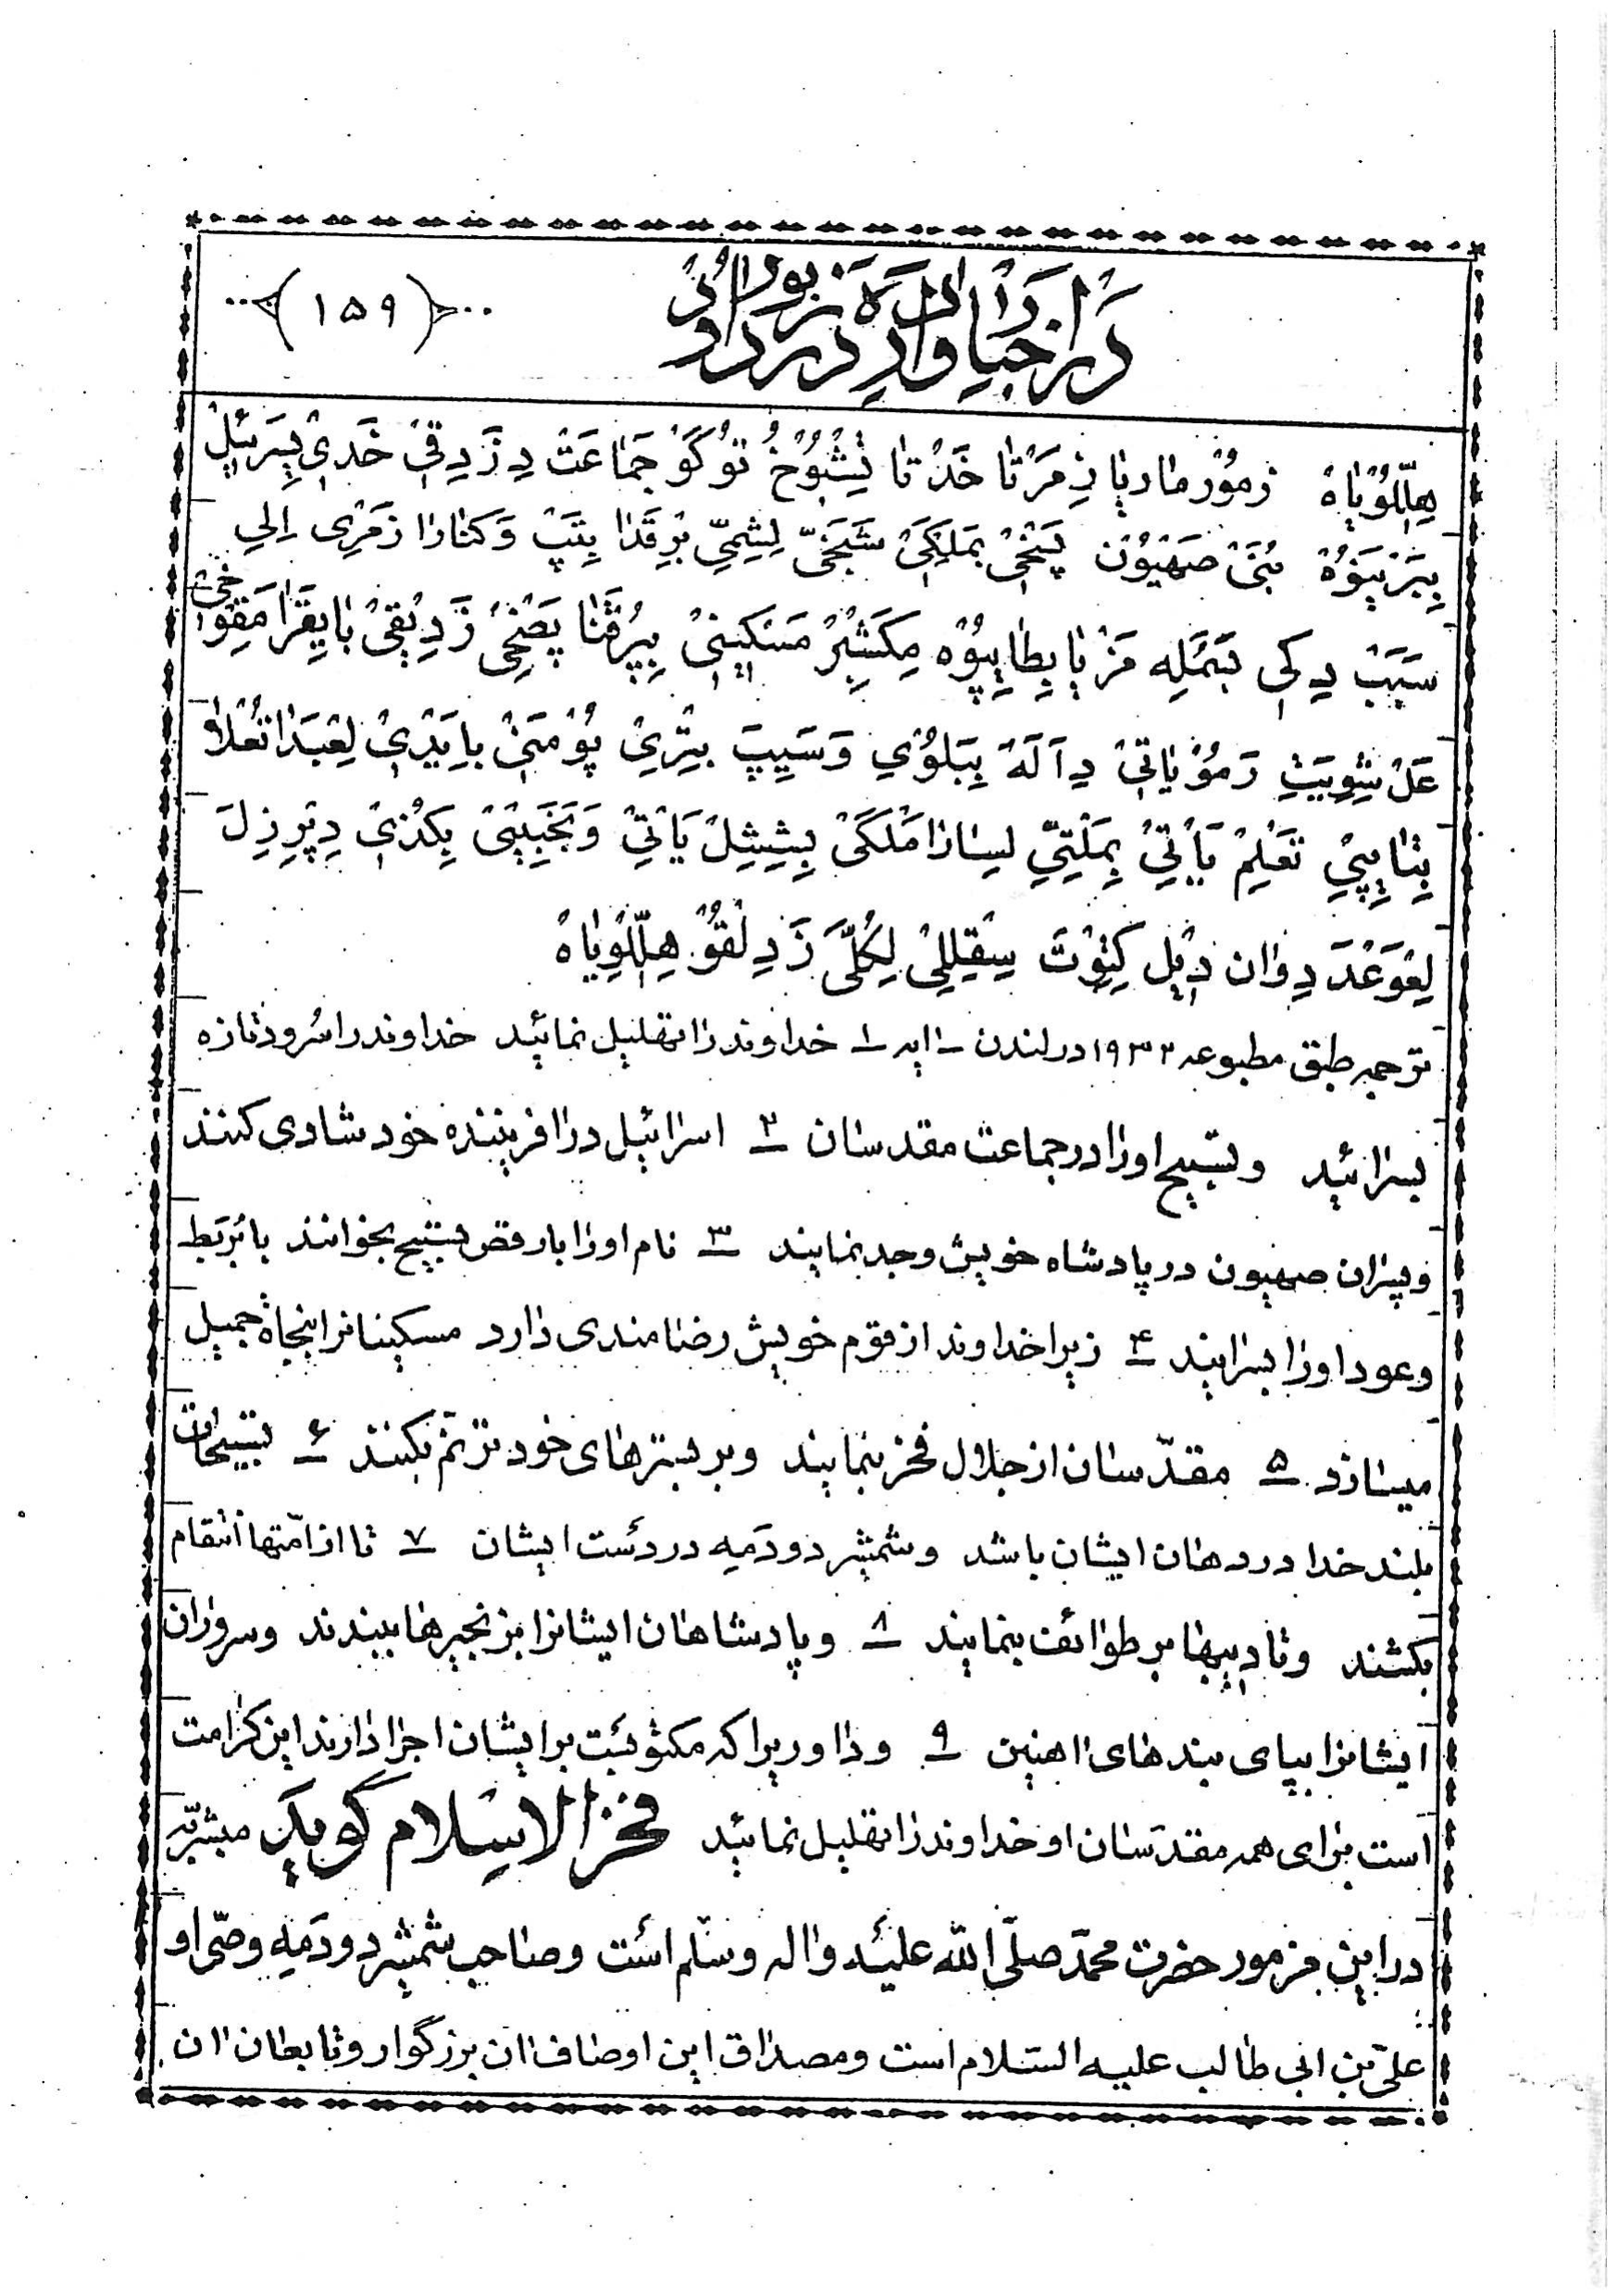 در اخبار وارده در زبور داود
(۱۵۹)
هِلِّلُوُیاهْ زمُوْر ماریا زِمَرْتا خَدْتا تِشْبُوُخْتُوُ گَوْ جَماعَتْ دِزَدِقِیْ خَدیْ یِسَرئیلْ
بِبَرْیَنوُهْ بُنَیْ صَهْیُوُن پَصْخیْ بمَلکَیْ شَبْخیْ لِشِمِّیِ بْرِقَدا بِتَپْ وَکنارا زمَرْی اِلیِ
سَبَبْ دِکیِ بَسْمَلِه مَرْیا بِطایِپوُه مِکَشِرْ مَسْکینیْ بِپُرْقَنا پَصْخیْ زَدِیْقیْ بایِقَرا مَقِوْخیْ
عَلْ شِوِیَتِ رَمُوْیاتیْ دِآلَهَ بِبَلُوُتیِ وَسَیِپَ بِتْرِیْ پُوُمَنیْ بایِدَیْ لِعْبَدا تُعْلا
بِتایِپیْ تَعْلِمْ یاتیْ بِمِلّتیِ لیِسارا مَلْکَیْ بِشِیشِلْ یاتیْ وَنَجِیبَیْ بِکُدْرَیْ دِپْرِزِلَ
لِعْوَعْدَ دِوان دِیْلِ کِتِوْتَ سِقِیلِلیْ لِکُلِّ زَدِیْقُوْ هِلِّلُوُیاهْ
ترجمه طبق مطبوعه ۱۹۳۲ در لندن ۱ـ ایه ۱ـ خداوند را تهلیل نمائید خداوند را سرود تازه
بسرائید و تسبیح او را در جماعت مقدسان ۲ـ اسرائیل در افریننده خود شادی کنند
و پسران صهیون در پادشاه خویش وجد بنمایند ۳ـ نام او را با رقص تسبیح بخوانند با بربط
و عود او را بسرایند ۴ـ زیرا خداوند از قوم خویش رضامندی دارد مسکینانرا بنجاة جمیل
میسازد ۵ـ مقدّسان از جلال فخر بنمایند و بر بسترهای خود ترنّم بکنند ۶ـ تسبیحات
بلند خدا در دهان ایشان باشد و شمشیر دو دَمه در دست ایشان ۷ـ تا از امّتها انتقام
بکشند و تادیبها بر طوائف بنمایند ۸ـ و پادشاهان ایشانرا بزنجیرها ببندند و سروران
ایشانرا بپای بندهای اهنین ۹ـ و داوریرا که مکتوبست بر ایشان اجرا دارند این کرامت
است برای همه مقدّسان او خداوند را تهلیل نمائید فخر الاسلام گوید مبشربه
در این مزمور حضرت محمّد صلّی الله علیه واله وسلم است و صاحب شمشیر دو دَمه وصّی او
علیّ بن ابی طالب علیه السّلام است و مصداق این اوصاف ان بزرگوار و تابعان ان